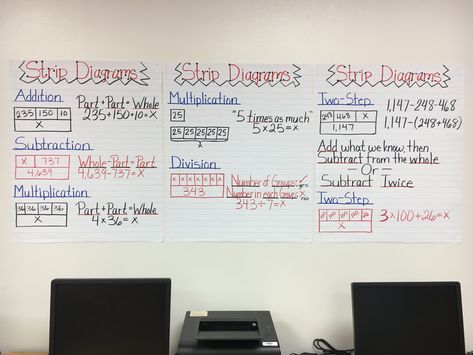 Strip Diagrams
Addition
235 150 10
X
Part + Part = Whole
235+150+10=X
Subtraction
X 737
4,639
Whole-Part=Part
4,639-737=X
Multiplication
36 36 36 36
X
Part + Part = Whole
4 x 36 = X
Strip Diagrams
Multiplication
25
"5 times as much"
25 25 25 25 25
X
5 x 25 = X
Division
X X X X X X X
343
Number of Groups: ✓
Number in each Group: X
343÷7=X
Strip Diagrams
Two-Step
1,147-248-468
248 468 X
1,147
1,147-(248+468)
Add what we know, then
Subtract from the whole
- Or -
Subtract Twice
Two-Step
X
3x100+26=X